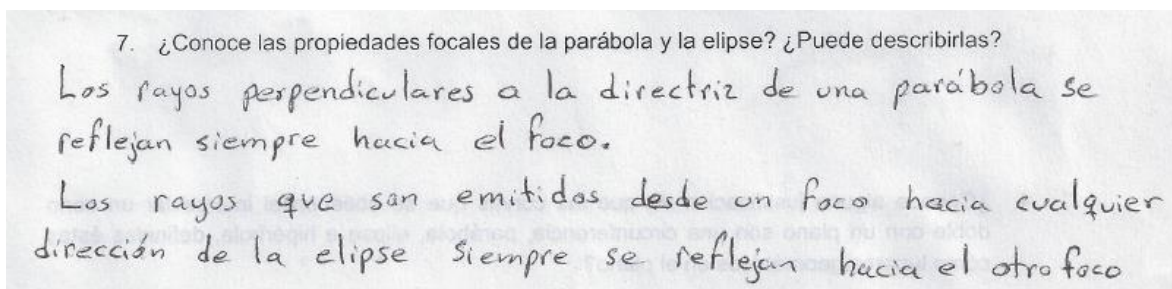 7. ¿Conoce las propiedades focales de la parábola y la elipse? ¿Puede describirlas?
Los rayos perpendiculares a la directriz de una parábola se
reflejan siempre hacia el foco.
Los rayos que son emitidos desde un foco hacia cualquier
dirección de la elipse siempre se reflejan hacia el otro foco